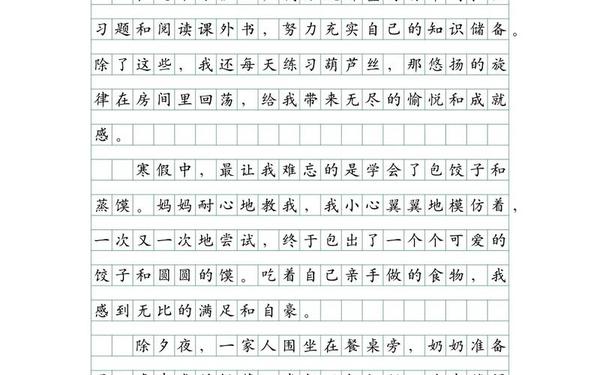 习题和阅读课外书，努力充实自己的知识储备。
除了这些，我还每天练习葫芦丝，那悠扬的旋
律在房间里回荡，给我带来无尽的愉悦和成就
感。
寒假中，最让我难忘的是学会了包饺子和
蒸馍。妈妈耐心地教我，我小心翼翼地模仿着，
一次又一次地尝试，终于包出了一个个可爱的
饺子和圆圆的馍。吃着自己亲手做的食物，我
感到无比的满足和自豪。
除夕夜，一家人围坐在餐桌旁，奶奶准备